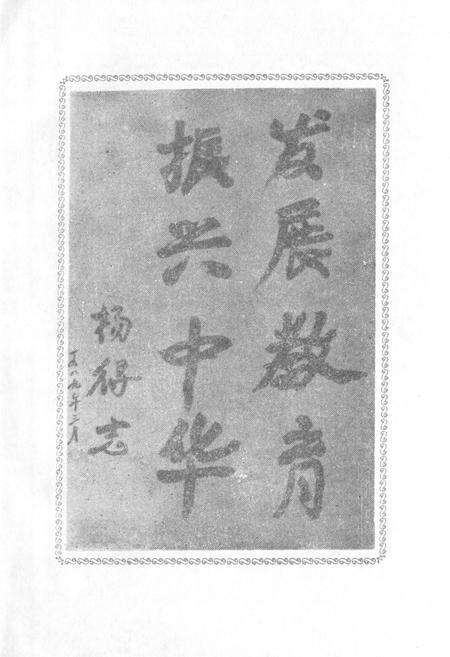 发展教育
振兴中华
杨得志
一九八九年二月